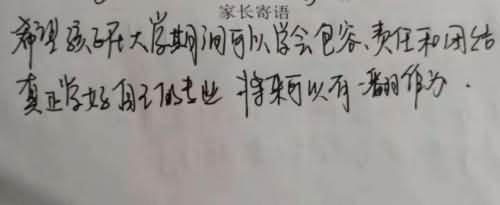 家长寄语
希望孩子在大学期间可以学会包容、责任和团结
真正学好自己的专业 将来可以有一番作为.